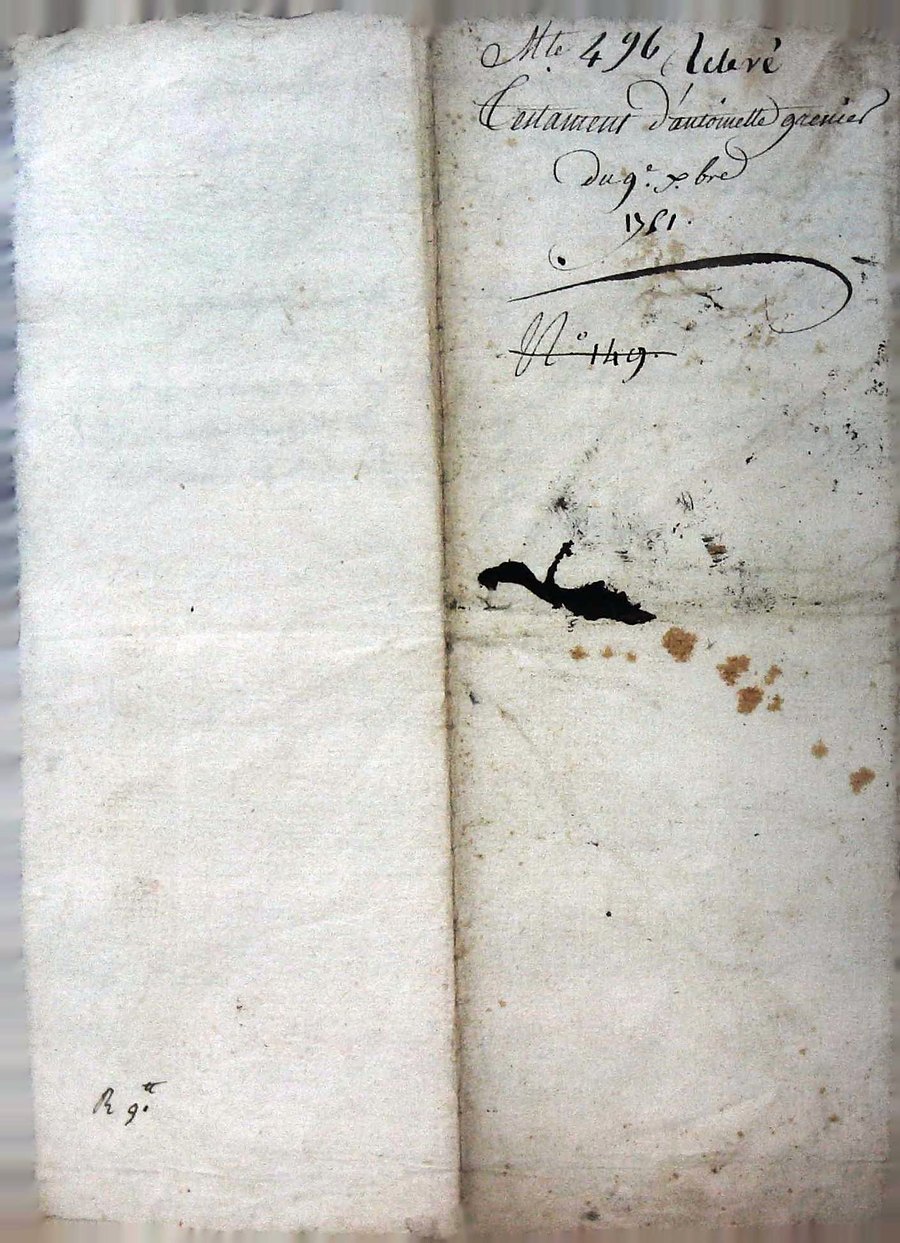 Mte 496 libéré
Testament d'antoinette grenier
du 9e. xbre
1761.
N° 149.
R 9tt